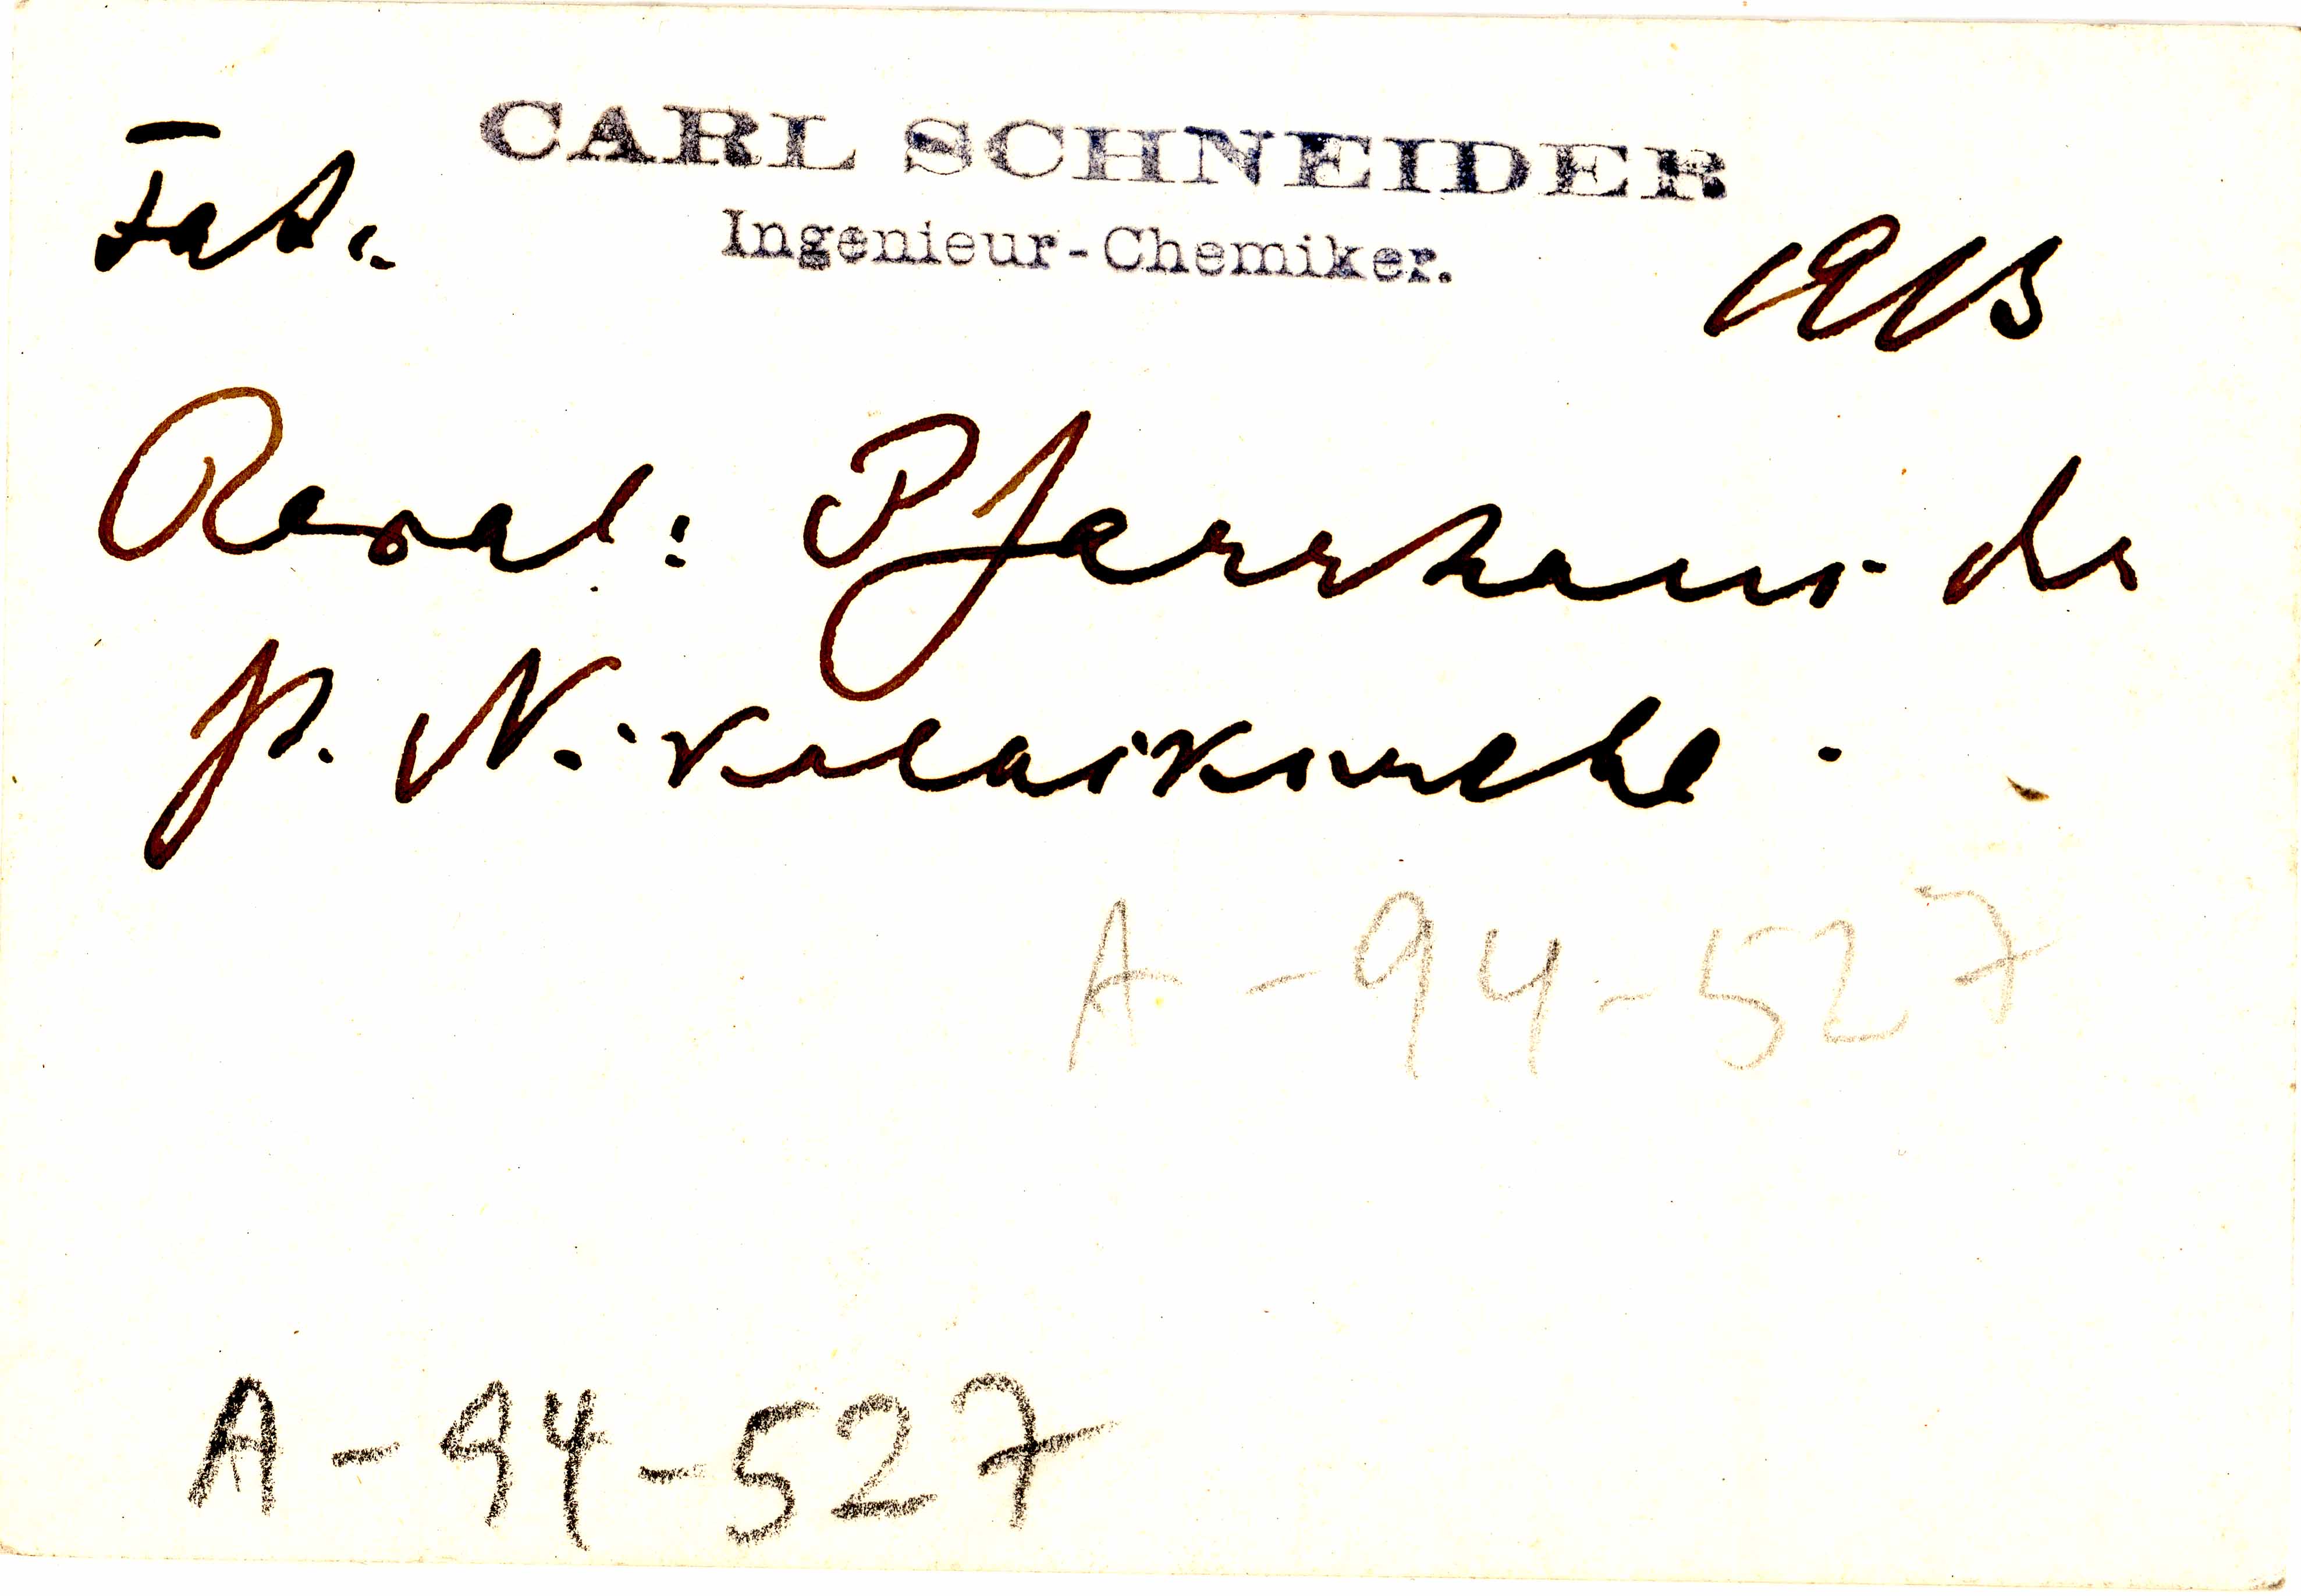 Fot. CARL SCHNEIDER
Ingenieur-Chemiker.
Reval: Pfarrhaus der
St. Nikolaikirche.
A-94-527
A-94-527